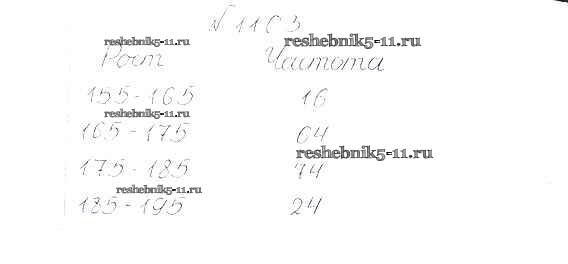 № 1103
reshebnik5-11.ru reshebnik5-11.ru
Рост Частота
155-165 16
reshebnik5-11.ru
165-175 64
reshebnik5-11.ru
175-185 74
reshebnik5-11.ru
185-195 24